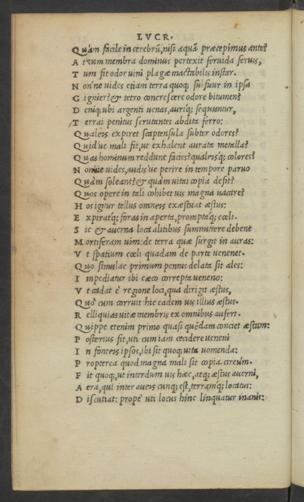 LVCR.
Quàm facile in cerebrũ, nisi aquã præcepimus ante?
At cum membra dominus pertexit feruida feruis,
Tum fit odor uini plagæ mactabilis instar.
Nonne uides etiam terra quoq; sulfur in ipsa
Gignier? & tetro concrescere odore bitumen?
Deniq; ubi argenti uenas, auriq; sequuntur,
Terrai penitus scrutantes abdita ferro:
Qualeis expiret scaptensula subter odores?
Quid'ue mali fit, ut exhalent aurata metalla?
Quas hominum reddunt facies? qualeis'q; colores?
Nonne uides, audis'ue perire in tempore paruo
Quàm soleant? & quàm uitai copia desit?
Quos opere in tali cohibet uis magna necesse?
Hos igitur tellus omneis exæstuat æstus:
Expirat'q; foras in aperta, prompta'q; cœli.
Sic & auerna loca alitibus summittere debent
Mortiferam uim: de terra quæ surgit in auras:
Vt spatium cœli quadam de parte uenenet.
Quo simulac primum pennis delata sit ales:
Impediatur ibi cæco correpta ueneno:
Vt cadat è regione loci, qua dirigit æstus,
Quò cum corruit hic eadem uis illius æstus.
Relliquias uitæ membris ex omnibus aufert.
Quippe etenim primo quasi quẽdam conciet æstum:
Posterius fit, uti cum iam cecidere ueneni
In fonteis ipsos, ibi sit quoq; uita uomenda:
Propterea quod magna mali sit copia circũm.
Fit quoq; ut interdum uis hæc, atq; æstus auerni,
Aera, qui inter aueis cunq; est, terram'q; locatus:
Discutiat: propè uti locus hinc linquatur inanis: